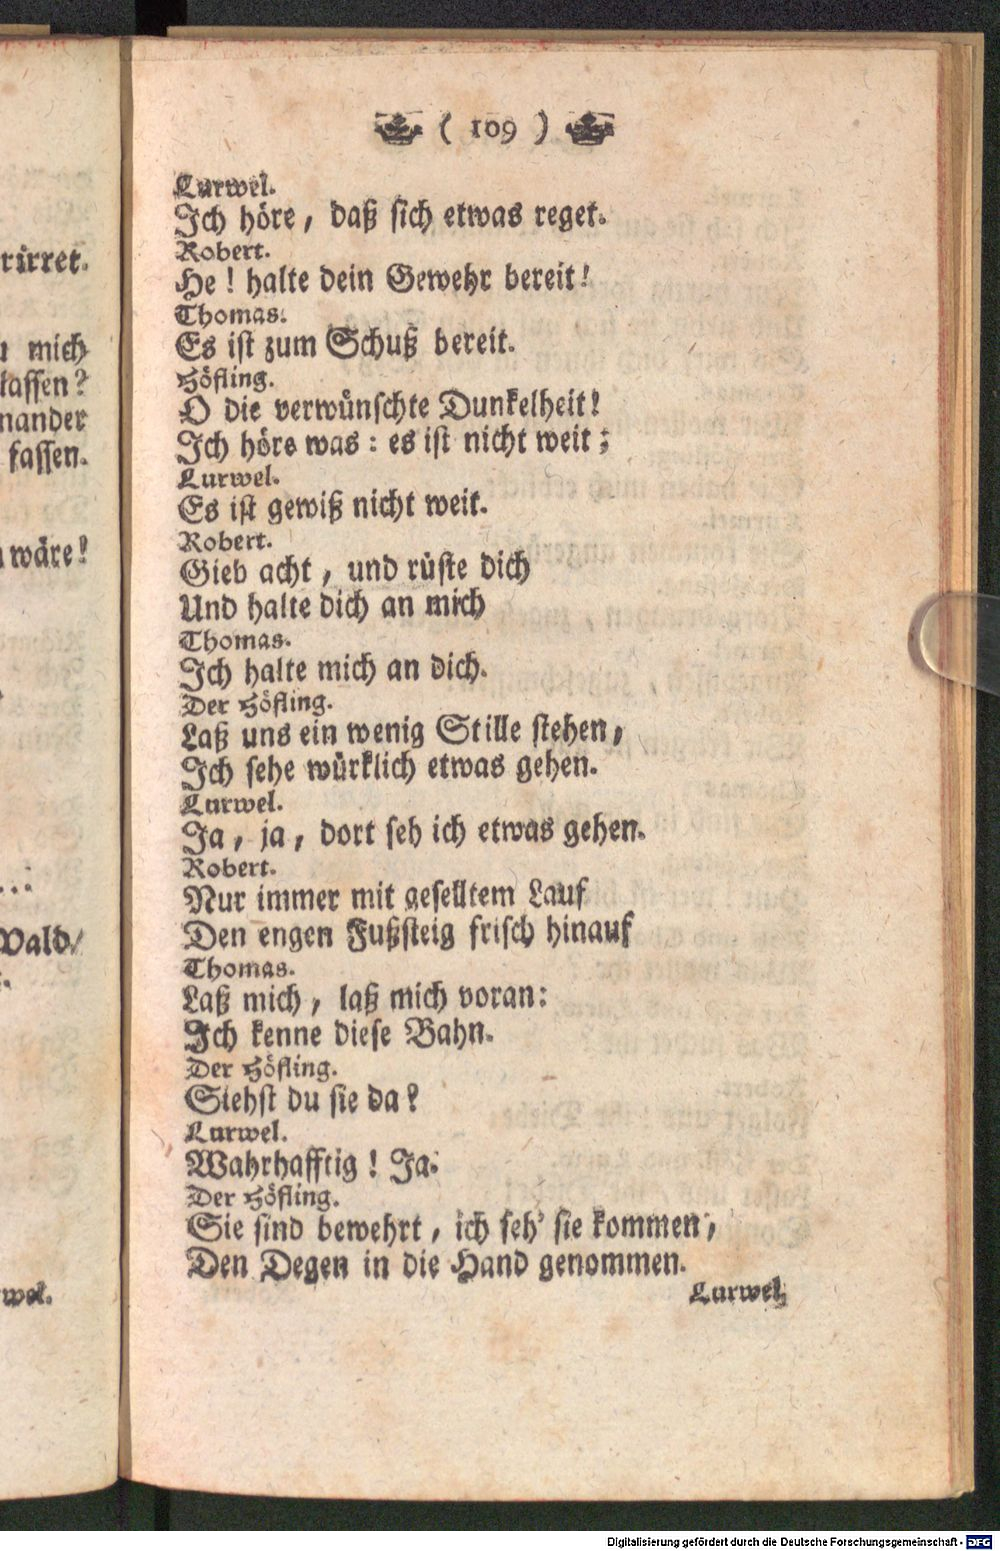 ( 109 )
Lurwel.
Ich höre, daß sich etwas reget.
Robert.
He! halte dein Gewehr bereit!
Thomas.
Es ist zum Schuß bereit.
Höfling.
O die verwünschte Dunkelheit!
Ich höre was: es ist nicht weit;
Lurwel.
Es ist gewiß nicht weit.
Robert.
Gieb acht, und rüste dich
Und halte dich an mich
Thomas.
Ich halte mich an dich.
Der Höfling.
Laß uns ein wenig Stille stehen,
Ich sehe würklich etwas gehen.
Lurwel.
Ja, ja, dort seh ich etwas gehen.
Robert.
Nur immer mit geselltem Lauf
Den engen Fußsteig frisch hinauf
Thomas.
Laß mich, laß mich voran:
Ich kenne diese Bahn.
Der Höfling.
Siehst du sie da?
Lurwel.
Wahrhafftig! Ja.
Der Höfling.
Sie sind bewehrt, ich seh' sie kommen,
Den Degen in die Hand genommen.
Lurwel.
rirret.
mich
lassen?
nander
fassen.
wäre!
Wald/
wel.
Digitalisierung gefördert durch die Deutsche Forschungsgemeinschaft - DFG